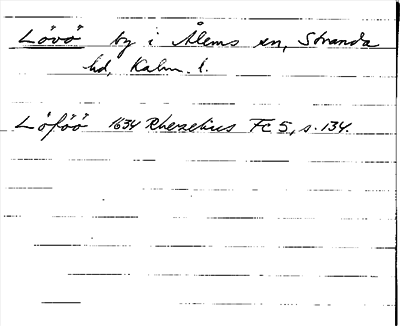 Lövö by i Ålems sn, Stranda
hd, Kalm. l.
Löföö 1634 Rhezelius Fc 5, s. 134.